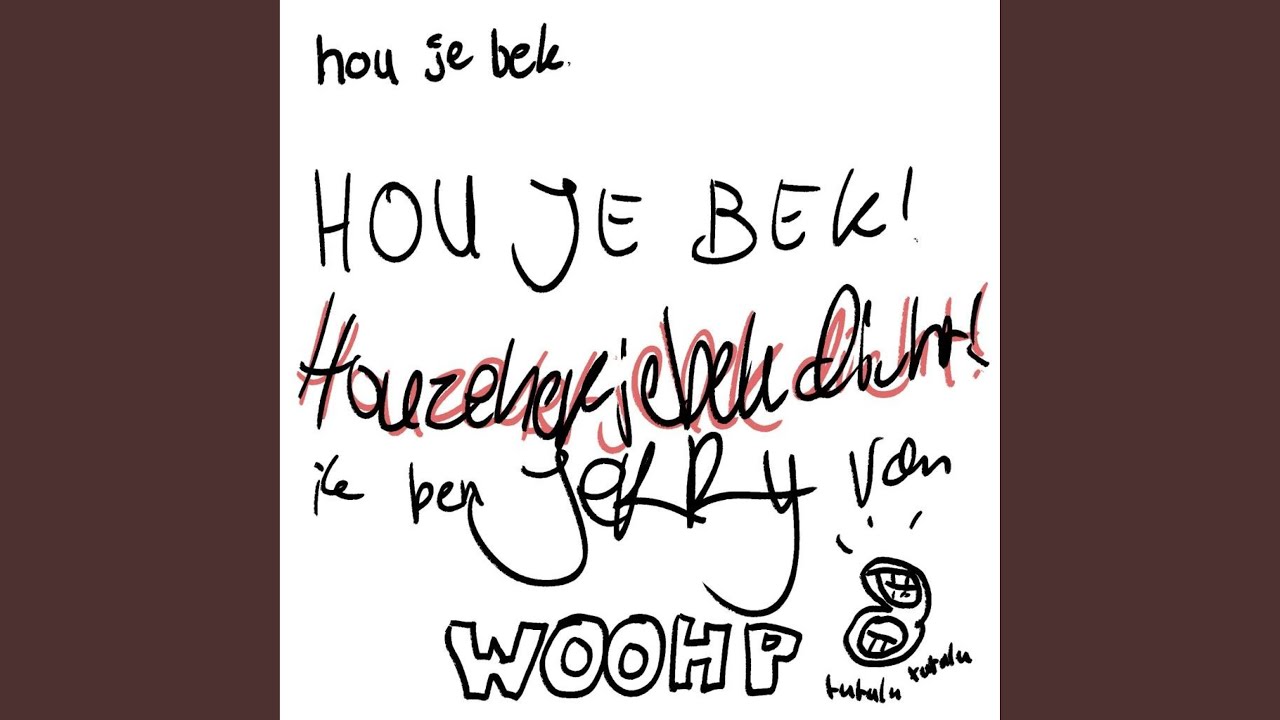 hou je bek.
HOU JE BEK!
Hou ze ker je bek dicht!
ik ben JERRY van
WOOHP
tutulu tutulu